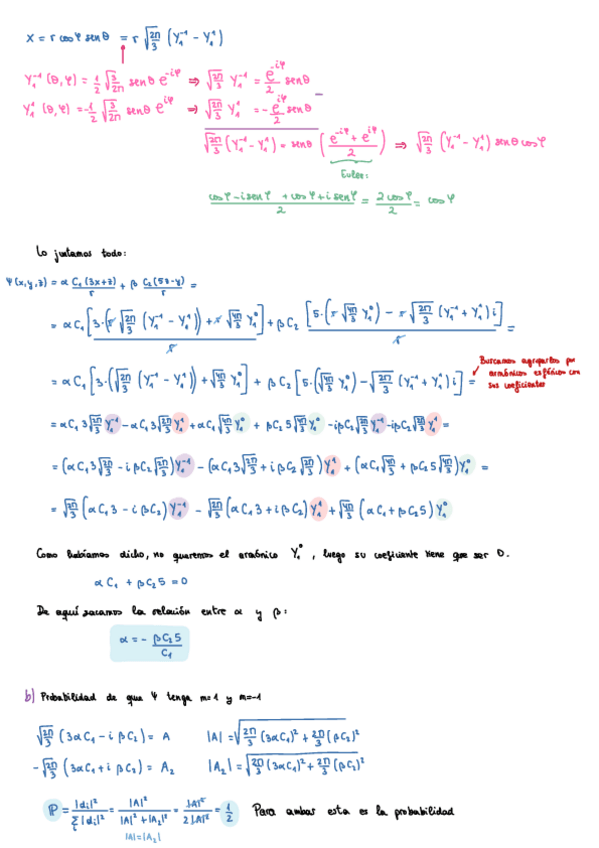 x = r cosφ senθ = r √(2π/3) (Y₁⁻¹ - Y₁¹)
Y₁⁻¹ (θ,φ) = 1/2 √(3/2π) senθ e^(-iφ) ⇒ √(2π/3) Y₁⁻¹ = e^(-iφ)/2 senθ
Y₁¹ (θ,φ) = -1/2 √(3/2π) senθ e^(iφ) ⇒ √(2π/3) Y₁¹ = - e^(iφ)/2 senθ
√(2π/3) (Y₁⁻¹ - Y₁¹) = senθ ( (e^(-iφ) + e^(iφ))/2 ) ⇒ √(2π/3) (Y₁⁻¹ - Y₁¹) senθ cosφ
Euler:
(cosφ - i senφ + cosφ + i senφ)/2 = 2cosφ/2 = cosφ
Lo juntamos todo:
Ψ(x,y,z) = α C₁(3x+z)/r + β C₂(5z-y)/r =
= α C₁ [3·(r √(2π/3) (Y₁⁻¹ - Y₁¹)) + r √(4π/3) Y₁⁰]/r + β C₂ [5·(r √(4π/3) Y₁⁰) - r √(2π/3) (Y₁⁻¹ + Y₁¹) i]/r =
= α C₁ [3·(√(2π/3) (Y₁⁻¹ - Y₁¹)) + √(4π/3) Y₁⁰] + β C₂ [5·(√(4π/3) Y₁⁰) - √(2π/3) (Y₁⁻¹ + Y₁¹) i] =
Buscamos agruparlos por
armónicos esféricos con
sus coeficientes
= α C₁ 3 √(2π/3) Y₁⁻¹ - α C₁ 3 √(2π/3) Y₁¹ + α C₁ √(4π/3) Y₁⁰ + β C₂ 5 √(4π/3) Y₁⁰ - i β C₂ √(2π/3) Y₁⁻¹ - i β C₂ √(2π/3) Y₁¹ =
= (α C₁ 3 √(2π/3) - i β C₂ √(2π/3)) Y₁⁻¹ - (α C₁ 3 √(2π/3) + i β C₂ √(2π/3)) Y₁¹ + (α C₁ √(4π/3) + β C₂ 5 √(4π/3)) Y₁⁰ =
= √(2π/3) (α C₁ 3 - i β C₂) Y₁⁻¹ - √(2π/3) (α C₁ 3 + i β C₂) Y₁¹ + √(4π/3) (α C₁ + β C₂ 5) Y₁⁰
Como habíamos dicho, no queremos el armónico Y₁⁰, luego su coeficiente tiene que ser 0.
α C₁ + β C₂ 5 = 0
De aquí sacamos la relación entre α y β:
α = - β C₂ 5 / C₁
b) Probabilidad de que Ψ tenga m=1 y m=-1
√(2π/3) (3α C₁ - i β C₂) = A |A| = √(2π/3 (3α C₁)² + 2π/3 (β C₂)²)
- √(2π/3) (3α C₁ + i β C₂) = A₂ |A₂| = √(2π/3 (3α C₁)² + 2π/3 (β C₂)²)
ℙ = |dᵢ|²/Σ|dᵢ|² = |A|²/(|A|² + |A₂|²) = |A|²/2|A|² = 1/2 Para ambas esta es la probabilidad
|A| = |A₂|